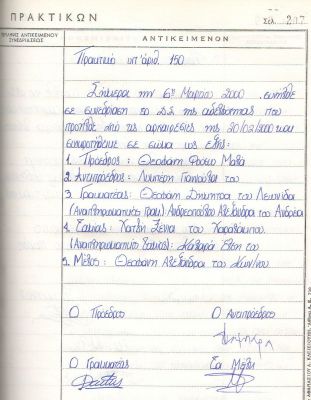 ΠΡΑΚΤΙΚΩΝ
Σελ. 247
ΑΝΤΙΚΕΙΜΕΝΟΝ
ΣΥΝΕΔΡΙΑΣΕΩΣ
ΑΝΤΙΚΕΙΜΕΝΟΝ
Πρακτικό υπ' αριθ. 150
Σήμερα την 6η Μαρτίου 2000
σε συνεδρίαση το ΔΣ της αδελφότητας που
προήλθε από τις αρχαιρεσίες της 20/02/2000 και
συγκροτήθηκε σε σώμα ως εξής:
1. Πρόεδρος: Θεοφάνη
2. Αντιπρόεδρος: του
3. Γραμματέας: Θεοφάνη Δήμητρα του Λεωνίδα
(Αναπληρωματικός Γραμ) Ανδρεοπούλου Αλεξάνδρα του Ανδρέα
4. Ταμίας: Χατζή Ξένια του Χαραλάμπου
(Αναπληρωματικός Ταμίας): Έφη του
5. Μέλος: Θεοφάνη Αλεξάνδρα του Κων/νου.
Ο Πρόεδρος Ο Αντιπρόεδρος
Ο Γραμματέας Τα Μέλη